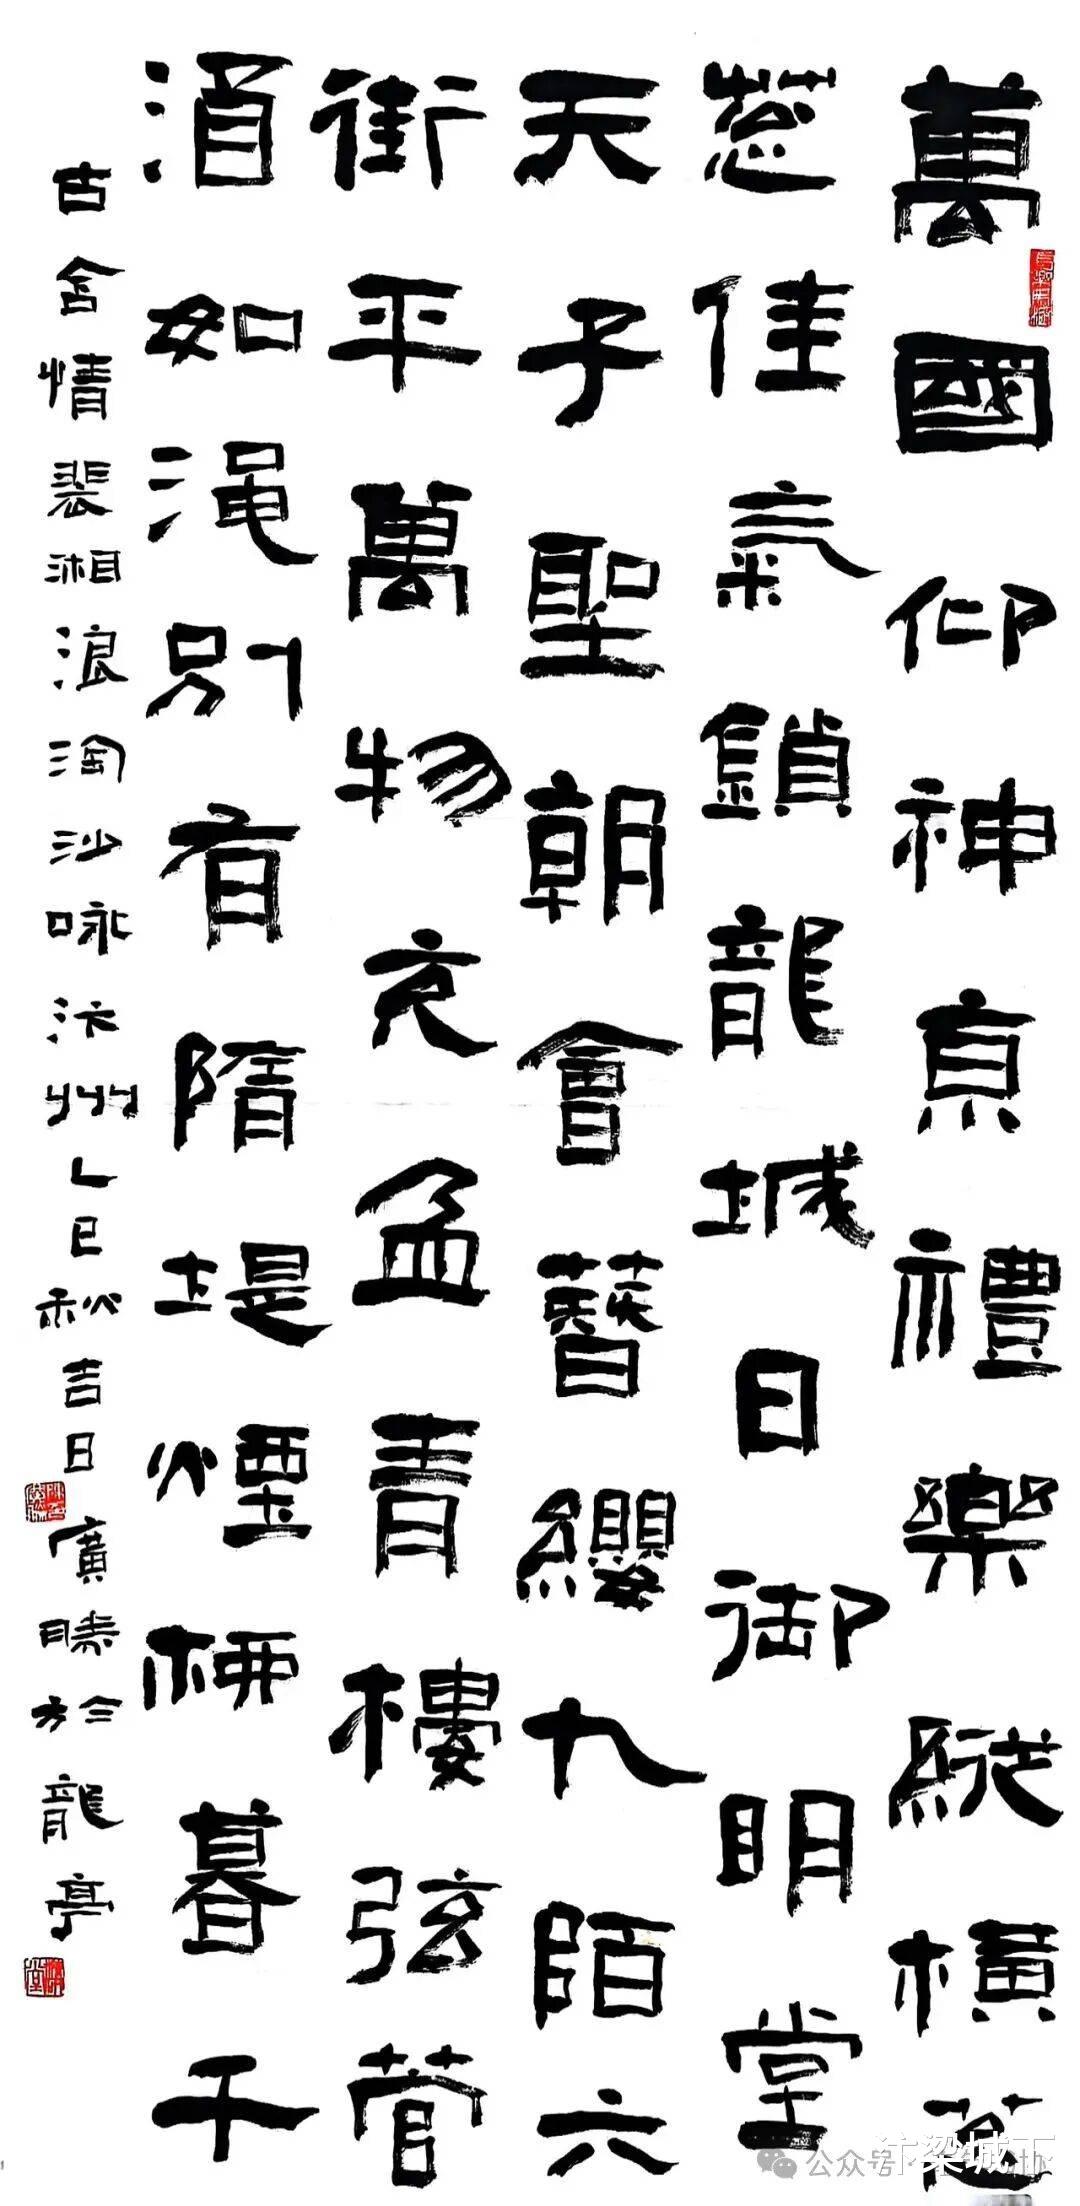 萬國仰神京禮樂縱橫葱
葱佳氣鎖龍城日御明堂
天子聖朝會簪纓九陌六
街平萬物充盈青樓弦管
酒如渑別有隋堤煙柳暮千
古含情裴湘浪淘沙咏汴州乙巳秋吉日廣勝於龍亭
公众号
汴梁城下